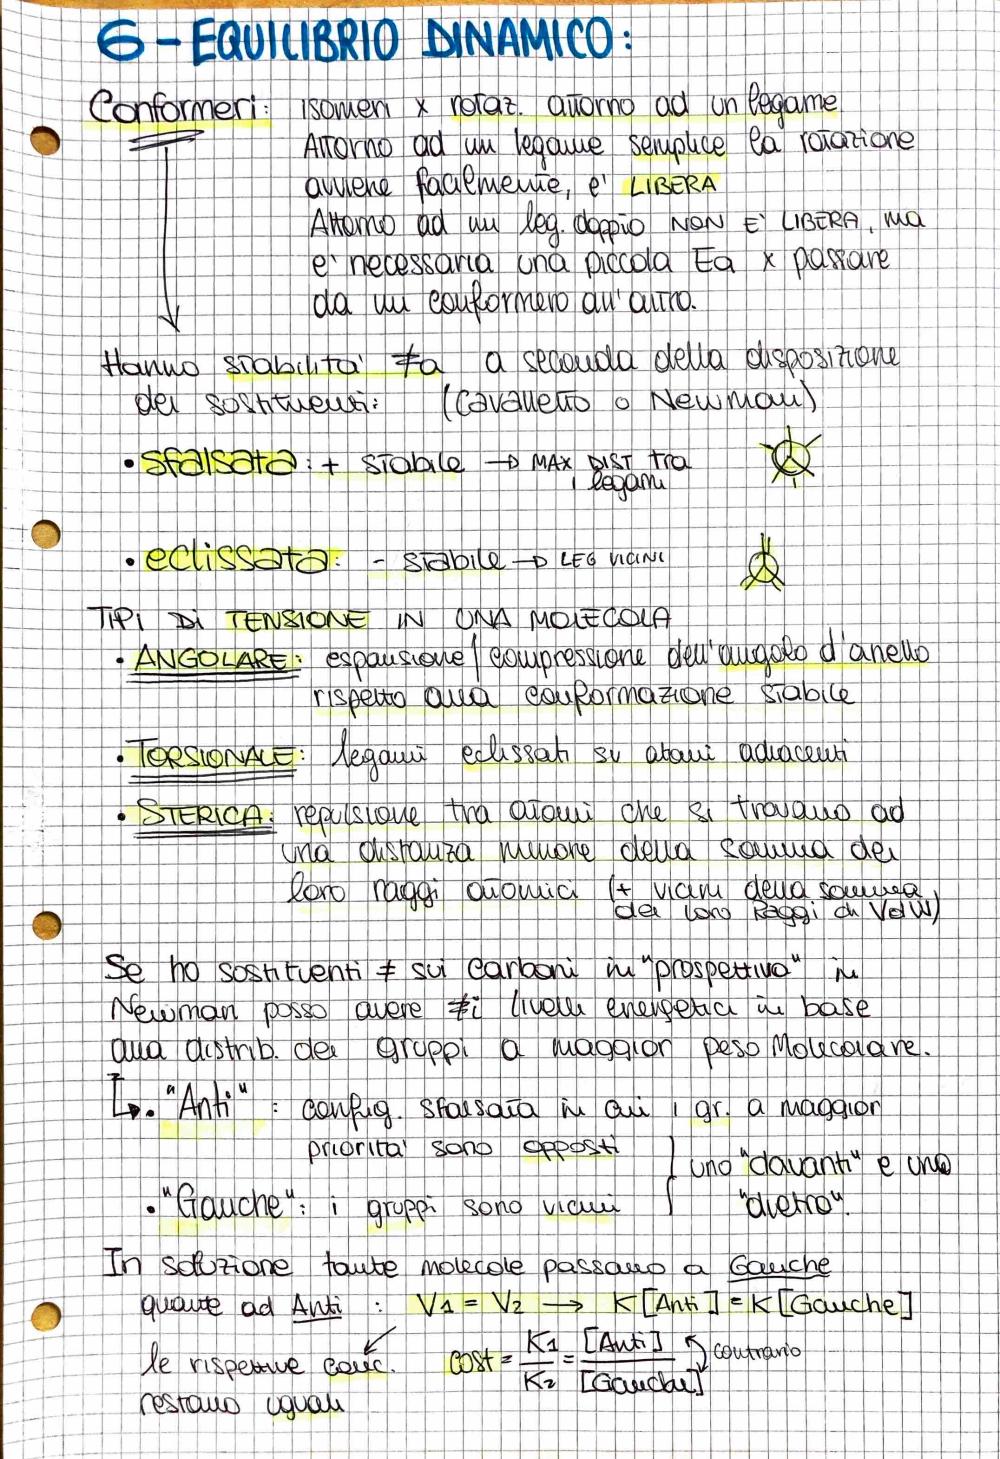 6 - EQUILIBRIO DINAMICO:
Conformeri: isomeri x rotaz. attorno ad un legame
Attorno ad un legame semplice la rotazione
avviene facilmente, e' LIBERA
Attorno ad un leg. doppio NON E' LIBERA, ma
e' necessaria una piccola Ea x passare
da un conformero all'altro.
Hanno stabilita' ≠a a seconda della disposizione
dei sostituenti: (Cavalletto o Newman)
• sfalsata: + stabile → MAX DIST tra
i legami
• eclissata: - stabile → LEG VICINI
TIPI DI TENSIONE IN UNA MOLECOLA
• ANGOLARE: espansione / compressione dell'angolo d'anello
rispetto alla conformazione stabile
• TORSIONALE: legami eclissati su atomi adiacenti
• STERICA: repulsione tra atomi che si trovano ad
una distanza minore della somma dei
loro raggi atomici (+ vicini della somma
dei loro Raggi di VdW)
Se ho sostituenti ≠ sui carboni in "prospettiva" in
Newman posso avere ≠i livelli energetici in base
alla distrib. dei gruppi a maggior peso Molecolare.
↳ • "Anti" : config. sfalsata in cui i gr. a maggior
priorita' sono opposti
uno "davanti" e uno
• "Gauche": i gruppi sono vicini
"dietro".
In soluzione tante molecole passano a Gauche
quante ad Anti : V1 = V2 → K[Anti] = K[Gauche]
le rispettive conc. cost = K1/K2 = [Anti]/[Gauche] contrario
restano uguali